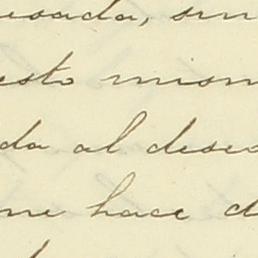 esada, sin
esto mism
da al dese
me hace d